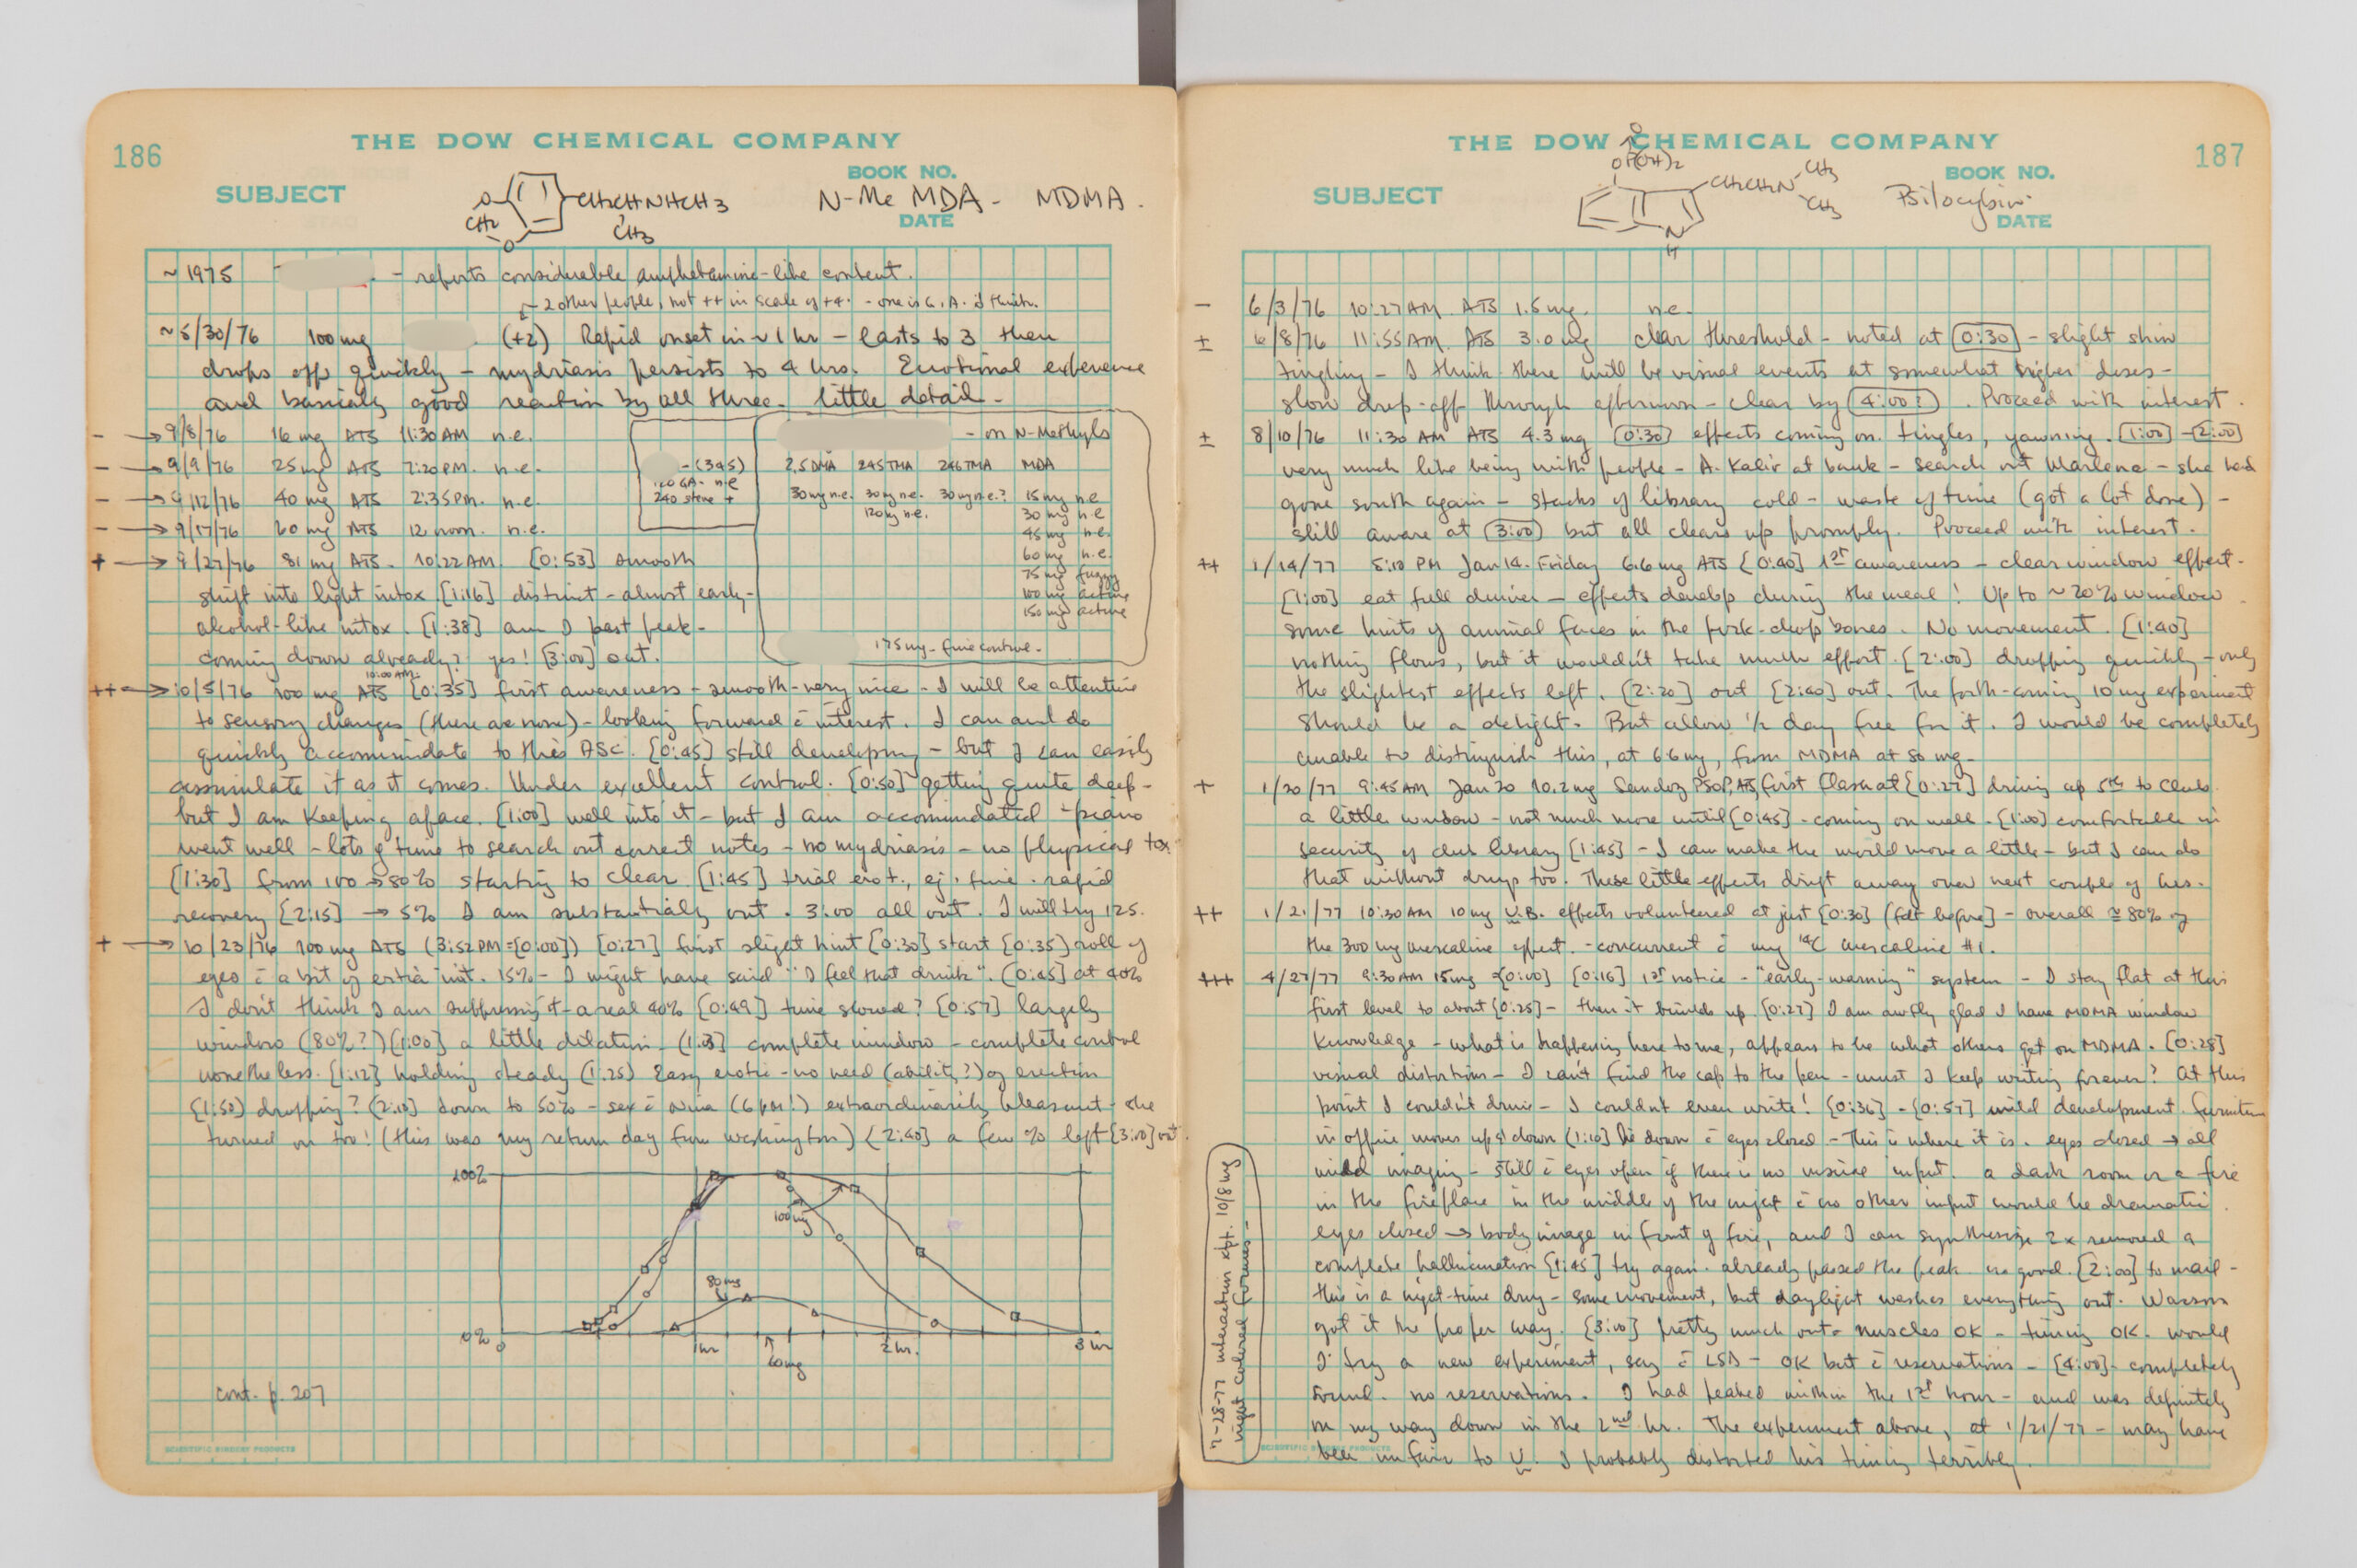 186
THE DOW CHEMICAL COMPANY
SUBJECT
BOOK NO.
DATE
O CH2 O CH2CHNHCH3 CH3
N-Me MDA - MDMA.
~1975 - reports considerable amphetamine-like content.
~ 2 other people, not ++ in scale of +4. - one is G.A. I think.
~5/30/76 100 mg (+2) Rapid onset in ~1 hr - lasts to 3 then
drops off quickly - mydriasis persists to 4 hrs. Emotional experience
and basicaly good reaction by all three. little detail -
- → 9/8/76 16 mg ATS 11:30 AM n.e.
- → 9/9/76 25 mg ATS 7:20 PM. n.e.
- → 9/12/76 40 mg ATS 2:35 PM. n.e.
- → 9/17/76 60 mg ATS 12 noon. n.e.
- (345)
120 GA - n.e
240 steve +
- on N-Methyls
2,5 DMA 245 TMA 246 TMA MDA
30 mg n.e. 30 mg n.e. 30 mg n.e.? 15 mg n.e
120 mg n.e. 30 mg n.e
45 mg n.e.
60 mg n.e.
75 mg fuzzy
100 mg active
150 mg active
175 mg - fine control -
+ → 9/27/76 81 mg ATS. 10:22 AM [0:53] smooth
shift into light intox [1:16] distinct - almost early-
alcohol-like intox. [1:38] am I past peak -
coming down already? yes! [3:00] out.
10:00 AM.
++ → 10/5/76 100 mg ATS [0:35] first awareness - smooth - very nice - I will be attentive
to sensory changes (there are none) - looking forward c̄ interest. I can and do
quickly accommodate to this ASC. [0:45] still developing - but I can easily
assimilate it as it comes. Under excellent control. [0:50] getting quite deep -
but I am keeping apace. [1:00] well into it - but I am accomindated - piano
went well - lots of time to search out correct notes - no mydriasis - no physical tox.
[1:30] from 100 → 80% starting to clear [1:45] trial erot., ej. fine. rapid
recovery [2:15] → 5% I am substantially out. 3:00 all out. I will try 125.
+ → 10/23/76 100 mg ATS (3:52 PM = [0:00]) [0:27] first slight hint [0:30] start [0:35] roll of
eyes c̄ a bit of extra int. 15% - I might have said "I feel that drink". [0:45] at 40%
I don't think I am suppressing it - a real 40% [0:49] time slowed? [0:57] largely
window (80%?) [1:00] a little dilation - [1:03] complete window - complete control
nonetheless. [1:12] holding steady [1:25] Easy erotic - no need (ability?) of erection
[1:50] dropping? [2:10] down to 50% - sex c̄ Nina (6 PM!) extraordinarily pleasant - she
turned on too! (this was my return day from Washington) [2:40] a few % left [3:00] out.
100%
100 mg
80 mg
0%
0 1 hr 2 hr. 3 hr
60 mg
cont. p. 207
SCIENTIFIC BINDERY PRODUCTS
187
THE DOW CHEMICAL COMPANY
SUBJECT
BOOK NO.
DATE
O OP(OH)2 CH2CH2N CH3 CH3 N H
Psilocybin
- 6/3/76 10:27 AM. ATS 1.5 mg. n.e.
± 6/8/76 11:55 AM. ATS 3.0 mg clear threshold - noted at [0:30] - slight skin
tingling - I think there will be visual events at somewhat higher doses -
slow drop-off through afternoon - clear by [4:00?]. Proceed with interest.
± 8/10/76 11:30 AM ATS 4.3 mg [0:30] effects coming on. tingles, yawning. [1:00] - [2:00]
very much like being with people - A. Kalir at bank - search out Marlene - she had
gone south again - stacks of library cold - waste of time (got a lot done) -
still aware at [3:00] but all clears up promptly. Proceed with interest.
++ 1/14/77 5:10 PM Jan 14. Friday 6.6 mg ATS [0:40] 1st awareness - clear window effect.
[1:00] eat full dinner - effects develop during the meal! Up to ~70% window.
some hints of animal faces in the pork-chop bones. No movement. [1:40]
nothing flows, but it wouldn't take much effort. [2:00] dropping quickly - only
the slightest effects left. [2:20] out [2:40] out. The forth-coming 10 mg experiment
should be a delight. But allow 1/2 day free for it. I would be completely
unable to distinguish this, at 6.6 mg, from MDMA at 80 mg -
+ 1/20/77 9:45 AM Jan 20 10.2 mg Sandoz PSOP, ATS, first flash at [0:27] driving up 5th to Club.
a little window - not much more until [0:45] - coming on well - [1:00] comfortable in
security of club library [1:45] - I can make the world move a little - but I can do
that without drugs too. These little effects drift away over next couple of hrs.
++ 1/21/77 10:30 AM 10 mg V.B. effects volunteered at just [0:30] (felt before) - overall ≅ 80% of
the 300 mg mescaline effect. - concurrent c̄ my 14C mescaline #1.
+++ 4/27/77 9:30 AM 15 mg = [0:00] [0:16] 1st notice - "early-warning" system - I stay flat at this
first level to about [0:25] - then it builds up. [0:27] I am awfly glad I have MDMA window
knowledge - what is happening here to me, appears to be what others get on MDMA. [0:28]
visual distortion - I can't find the cap to the pen - must I keep writing forever? At this
point I couldn't drive - I couldn't even write! [0:36] - [0:57] mild development. furniture
in office moves up & down [1:10] lie down c̄ eyes closed - This is where it is. eyes closed → all
mild imaging - still c̄ eyes open if there is no visual input. a dark room or a fire
in the fireplace in the middle of the night c̄ no other input would be dramatic.
eyes closed → body image in front of fire, and I can synthesize 2x removed a
complete hallucination [1:45] try again - already passed the peak - no good. [2:00] to mail -
this is a night-time drug - some movement, but daylight washes everything out. Wasson
got it the proper way. [3:00] pretty much out - muscles OK - timing OK. would
I try a new experiment, say c̄ LSD - OK but c̄ reservations - [4:00] - completely
sound. no reservations. I had peaked within the 1st hour - and was definitely
on my way down in the 2nd hr. The experiment above, at 1/21/77 - may have
been unfair to V. I probably distorted his timing terribly.
7-28-77 interaction xpt. 10/8 mg
night colored forms -
SCIENTIFIC BINDERY PRODUCTS